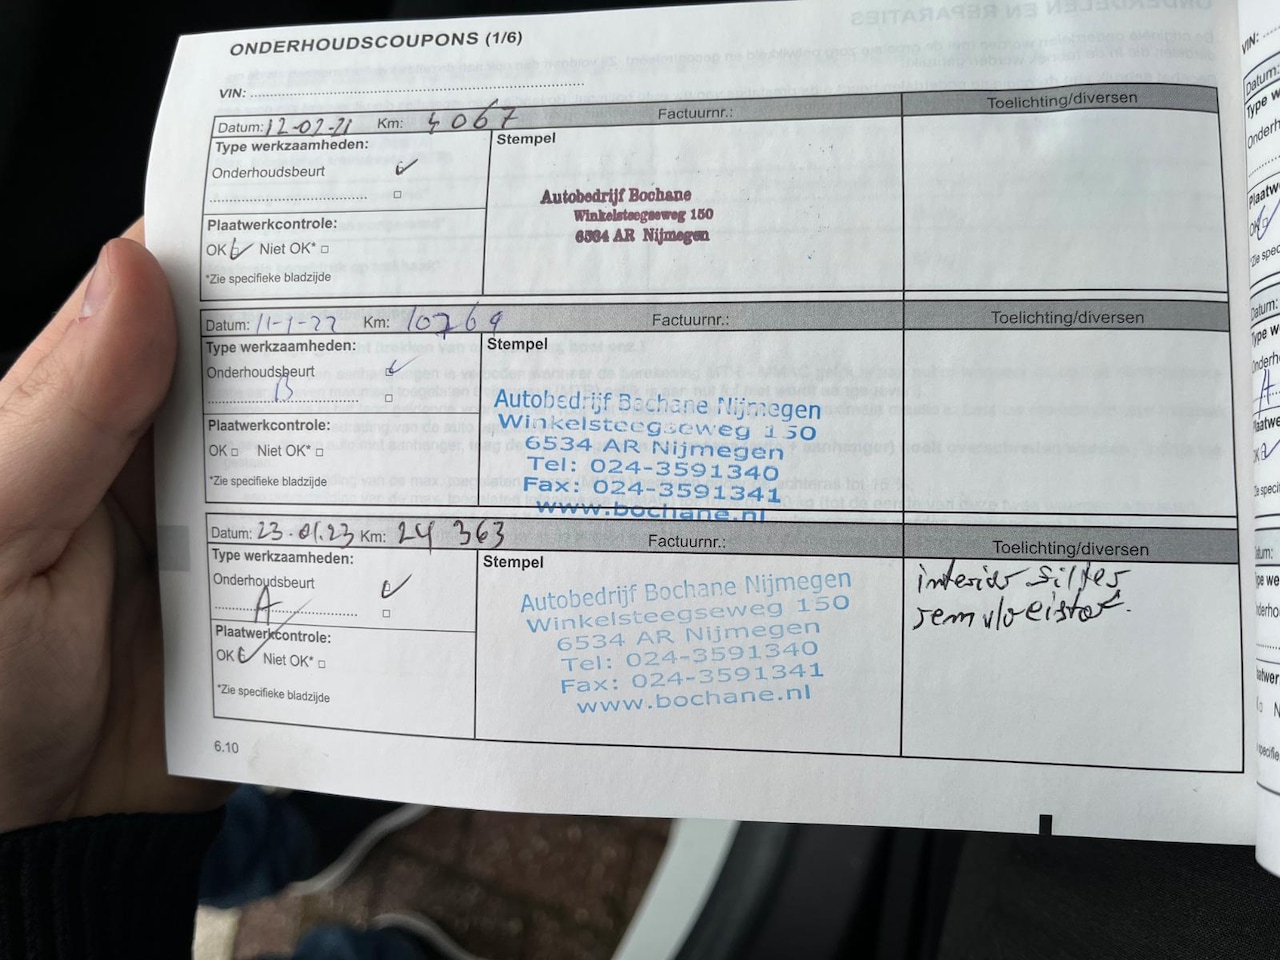 ONDERHOUDSCOUPONS (1/6)
VIN:
Datum: 12-02-21 Km: 4067 Factuurnr.: Toelichting/diversen
Type werkzaamheden: Stempel
Onderhoudsbeurt
Autobedrijf Bochane
Winkelsteegseweg 150
6534 AR Nijmegen
Plaatwerkcontrole:
OK Niet OK*
*Zie specifieke bladzijde
Datum: 11-1-22 Km: 10769 Factuurnr.: Toelichting/diversen
Type werkzaamheden: Stempel
Onderhoudsbeurt
B
Autobedrijf Bochane Nijmegen
Winkelsteegseweg 150
6534 AR Nijmegen
Tel: 024-3591340
Fax: 024-3591341
www.bochane.nl
Plaatwerkcontrole:
OK Niet OK*
*Zie specifieke bladzijde
Datum: 23.01.23 Km: 24 363 Factuurnr.: Toelichting/diversen
Type werkzaamheden: Stempel
Onderhoudsbeurt
A
Autobedrijf Bochane Nijmegen
Winkelsteegseweg 150
6534 AR Nijmegen
Tel: 024-3591340
Fax: 024-3591341
www.bochane.nl
interior filter
remvloeistof.
Plaatwerkcontrole:
OK Niet OK*
*Zie specifieke bladzijde
6.10